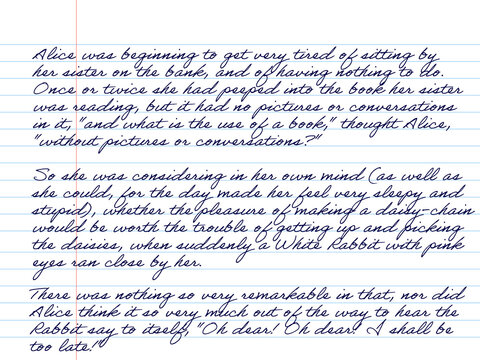 Alice was beginning to get very tired of sitting by
her sister on the bank, and of having nothing to do.
Once or twice she had peeped into the book her sister
was reading, but it had no pictures or conversations
in it, "and what is the use of a book," thought Alice,
"without pictures or conversations?"
So she was considering in her own mind (as well as
she could, for the day made her feel very sleepy and
stupid), whether the pleasure of making a daisy-chain
would be worth the trouble of getting up and picking
the daisies, when suddenly a White Rabbit with pink
eyes ran close by her.
There was nothing so very remarkable in that, nor did
Alice think it so very much out of the way to hear the
Rabbit say to itself, "Oh dear! Oh dear! I shall be
too late!"